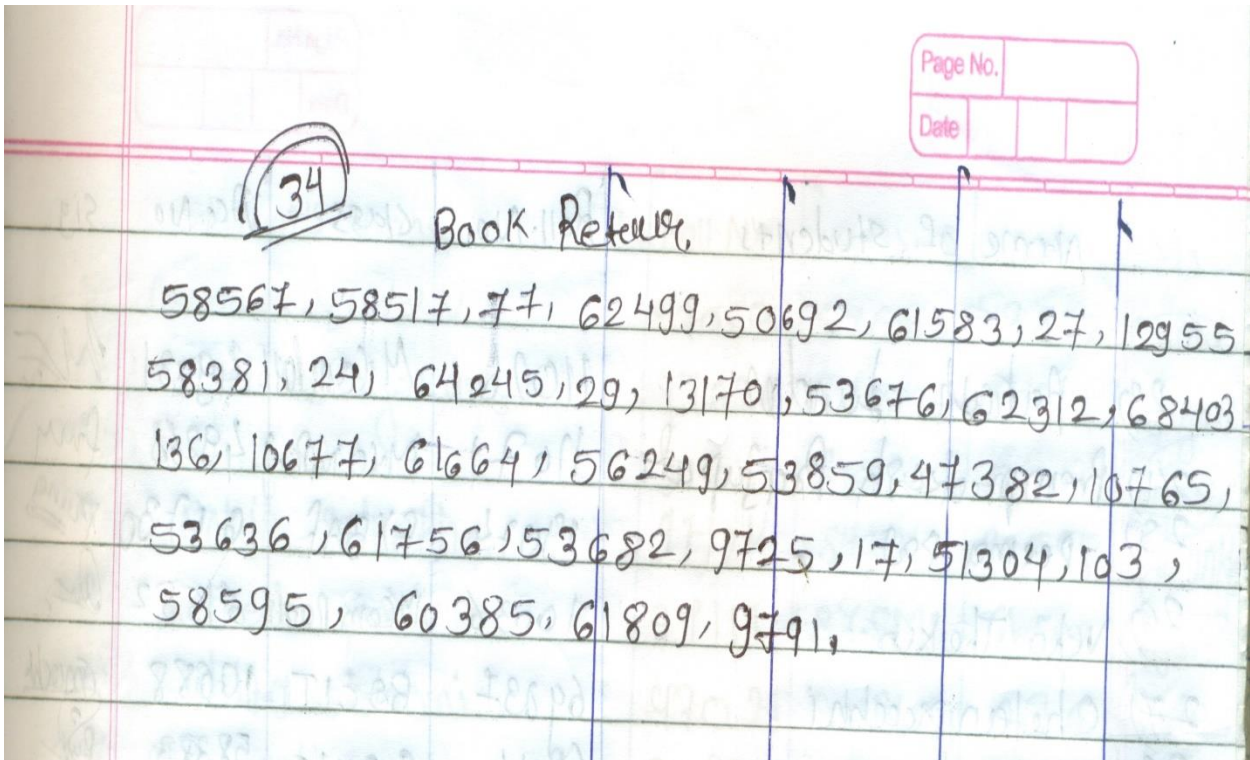 Page No.
Date
34
Book Return
58567, 58517, 77, 62499, 50692, 61583, 27, 12955
58381, 24, 64245, 29, 13170, 53676, 62312, 68403
136, 10677, 61664, 56249, 53859, 47382, 10765,
53636, 61756, 53682, 9725, 17, 51304, 103,
58595, 60385, 61809, 9791,